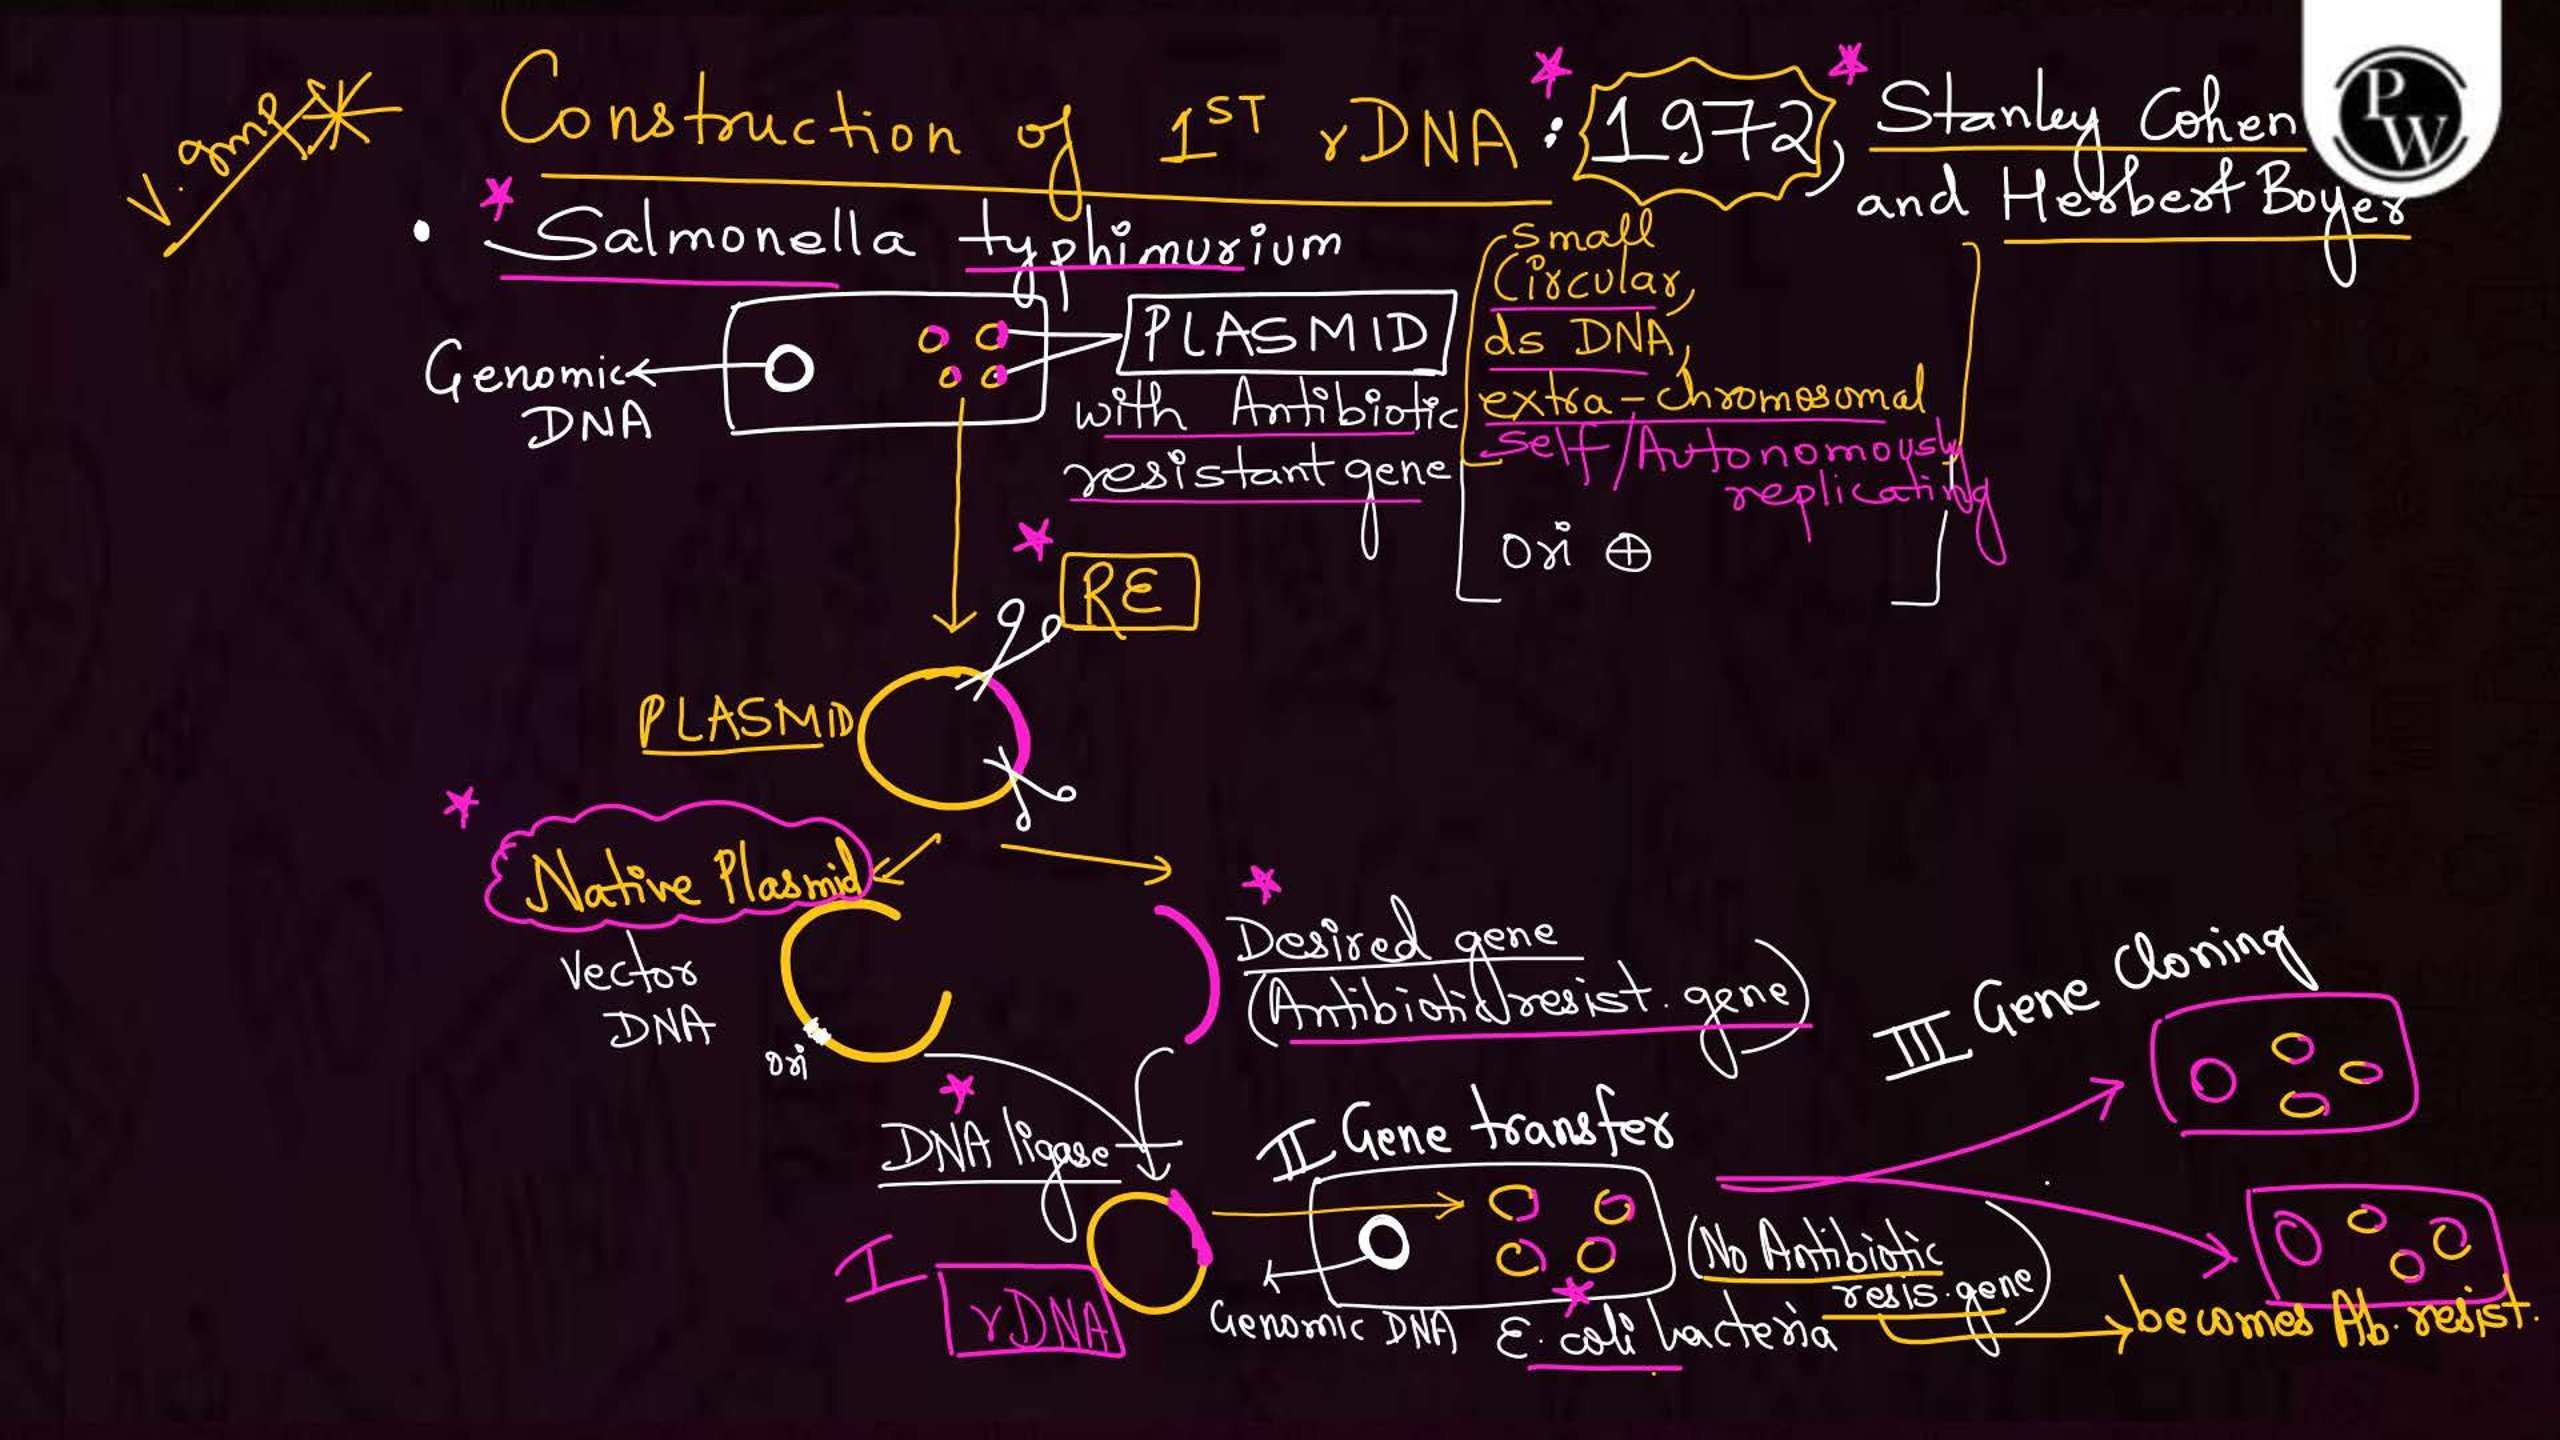 V. Imp
Construction of 1ST rDNA : 1972, Stanley Cohen
and Herbert Boyer
PW
• Salmonella typhimurium
Genomic
DNA
PLASMID
with Antibiotic
resistant gene
Small
Circular,
ds DNA,
extra-chromosomal
self/Autonomously
replicating
Ori ⊕
RE
PLASMID
Native Plasmid
Vector
DNA
ori
Desired gene
(Antibiotic resist. gene)
DNA ligase
I rDNA
II Gene transfer
Genomic DNA
E. coli bacteria
(No Antibiotic
resis. gene)
III Gene Cloning
becomes Ab. resist.